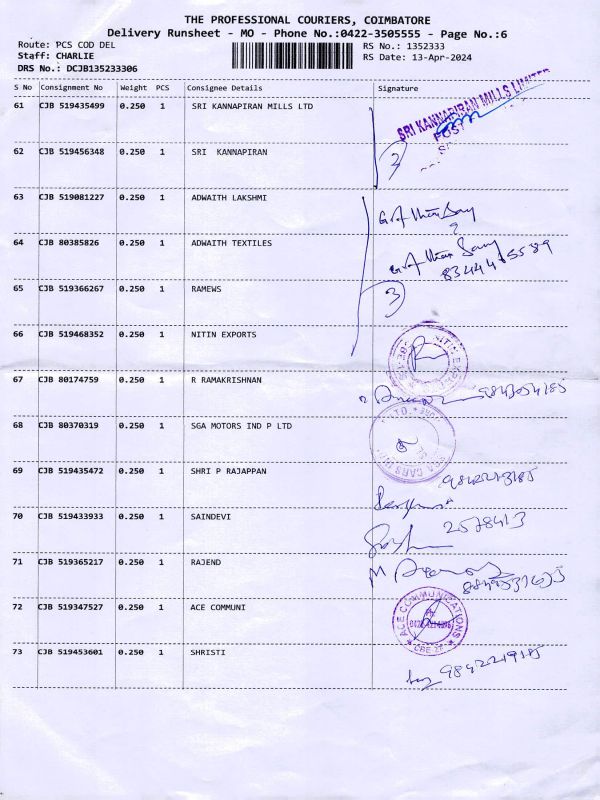 THE PROFESSIONAL COURIERS, COIMBATORE
Delivery Runsheet - MO - Phone No.:0422-3505555 - Page No.:6
Route: PCS COD DEL RS No.: 1352333
Staff: CHARLIE RS Date: 13-Apr-2024
DRS No.: DCJB135233306
S No Consignment No Weight PCS Consignee Details Signature
61 CJB 519435499 0.250 1 SRI KANNAPIRAN MILLS LTD
SRI KANNAPIRAN MILLS LIMITED
POST
62 CJB 519456348 0.250 1 SRI KANNAPIRAN
3
63 CJB 519081227 0.250 1 ADWAITH LAKSHMI
64 CJB 80385826 0.250 1 ADWAITH TEXTILES
65 CJB 519366267 0.250 1 RAMEWS
3
66 CJB 519468352 0.250 1 NITIN EXPORTS
67 CJB 80174759 0.250 1 R RAMAKRISHNAN
68 CJB 80370319 0.250 1 SGA MOTORS IND P LTD
69 CJB 519435472 0.250 1 SHRI P RAJAPPAN
70 CJB 519433933 0.250 1 SAINDEVI
2578413
71 CJB 519365217 0.250 1 RAJEND
72 CJB 519347527 0.250 1 ACE COMMUNI
ACE COMMUNICATIONS
73 CJB 519453601 0.250 1 SHRISTI